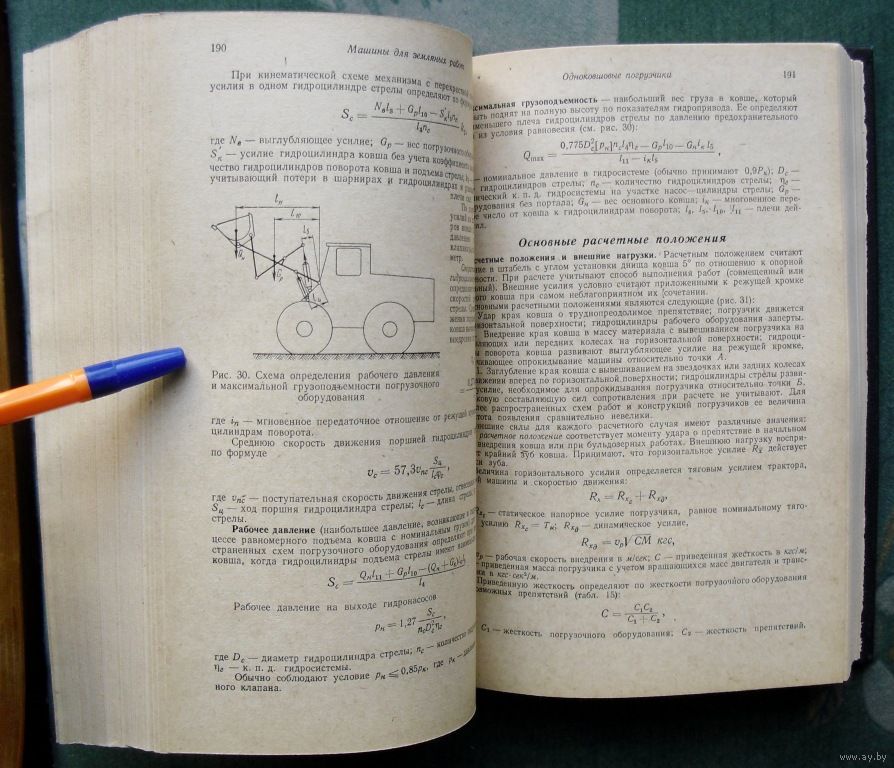 190
Машины для земляных работ
При кинематической схеме механизма с перекрестной
усилия в одном гидроцилиндре стрелы определяют по
S_c = (N_в l_3 + G_p l_10 − S'_к l_5 n_к) / (l_4 n_c)
где N_в — выглубляющее усилие; G_p — вес погрузочного
S'_к — усилие гидроцилиндра ковша без учета коэффициента
чество гидроцилиндров поворота ковша и подъема стрелы;
учитывающий потери в шарнирах и гидроцилиндрах и
l_11
l_10
l_5
l_4
Рис. 30. Схема определения рабочего давления
и максимальной грузоподъемности погрузочного
оборудования
где i_п — мгновенное передаточное отношение от режущей
цилиндрам поворота.
Среднюю скорость движения поршней гидроцилиндров
по формуле
v_c = 57,3v_пс S_ц / (l_c φ_c),
где v_пс — поступательная скорость движения стрелы,
S_ц — ход поршня гидроцилиндра стрелы; l_c — длина
стрелы.
Рабочее давление (наибольшее давление, возникающее в
цессе равномерного подъема ковша с номинальным грузом)
страненных схем погрузочного оборудования определяют
ковша, когда гидроцилиндры подъема стрелы имеют
S_c = (Q_н l_11 + G_p l_10 − (Q_н + G_к) i_к l_5) / l_4
Рабочее давление на выходе гидронасосов
p_н = 1,27 S_c / (n_c D_c² η_г),
где D_c — диаметр гидроцилиндра стрелы; n_c — количество
η_г — к. п. д. гидросистемы.
Обычно соблюдают условие p_н ≤ 0,85p_к, где p_к —
ного клапана.
Одноковшовые погрузчики
191
грузоподъемность — наибольший вес груза в ковше, который
поднят на полную высоту по показателям гидропривода. Ее определяют
плеча гидроцилиндров стрелы по давлению предохранительного
из условия равновесия (см. рис. 30):
Q_max = (0,775D_c²[p_н]n_c l_4 η_г − G_p l_10 − G_к i_к l_5) / (l_11 − i_к l_5),
— номинальное давление в гидросистеме (обычно принимают 0,9P_к); D_c —
гидроцилиндров стрелы; n_c — количество гидроцилиндров стрелы; η_г —
к. п. д. гидросистемы на участке насос—цилиндры стрелы; G_p —
без портала; G_к — вес основного ковша; i_к — мгновенное пере-
число от ковша к гидроцилиндрам поворота; l_4, l_5, l_10, l_11 — плечи дей-
Основные расчетные положения
положения и внешние нагрузки. Расчетным положением считают
в штабель с углом установки днища ковша 5° по отношению к опорной
При расчете учитывают способ выполнения работ (совмещенный или
Внешние усилия условно считают приложенными к режущей кромке
ковша при самом неблагоприятном их сочетании.
расчетными положениями являются следующие (рис. 31):
Удар края ковша о труднопреодолимое препятствие; погрузчик движется
поверхности; гидроцилиндры рабочего оборудования заперты.
Внедрение края ковша в массу материала с вывешиванием погрузчика на
или передних колесах на горизонтальной поверхности; гидроци-
поворота ковша развивают выглубляющее усилие на режущей кромке,
опрокидывание машины относительно точки А.
Заглубление края ковша с вывешиванием на звездочках или задних колесах
вперед по горизонтальной поверхности; гидроцилиндры стрелы разви-
усилие, необходимое для опрокидывания погрузчика относительно точки Б.
составляющую сил сопротивления при расчете не учитывают. Для
распространенных схем работ и конструкций погрузчиков ее величина
появления сравнительно невелики.
силы для каждого расчетного случая имеют различные значения:
расчетное положение соответствует моменту удара о препятствие в начальном
внедрения ковша или при бульдозерных работах. Внешнюю нагрузку воспри-
крайний зуб ковша. Принимают, что горизонтальное усилие R_x действует
зуба.
горизонтального усилия определяется тяговым усилием трактора,
машины и скоростью движения:
R_x = R_xc + R_xд,
R_xc — статическое напорное усилие погрузчика, равное номинальному тяго-
усилию R_xc = T_н; R_xд — динамическое усилие,
R_xд = v_p √CM кгс,
— рабочая скорость внедрения в м/сек; C — приведенная жесткость в кгс/м;
приведенная масса погрузчика с учетом вращающихся масс двигателя и транс-
в кгс·сек²/м.
Приведенную жесткость определяют по жесткости погрузочного оборудования
препятствий (табл. 15):
C = C_1C_2 / (C_1 + C_2),
C_1 — жесткость погрузочного оборудования; C_2 — жесткость препятствий.
www.ay.by